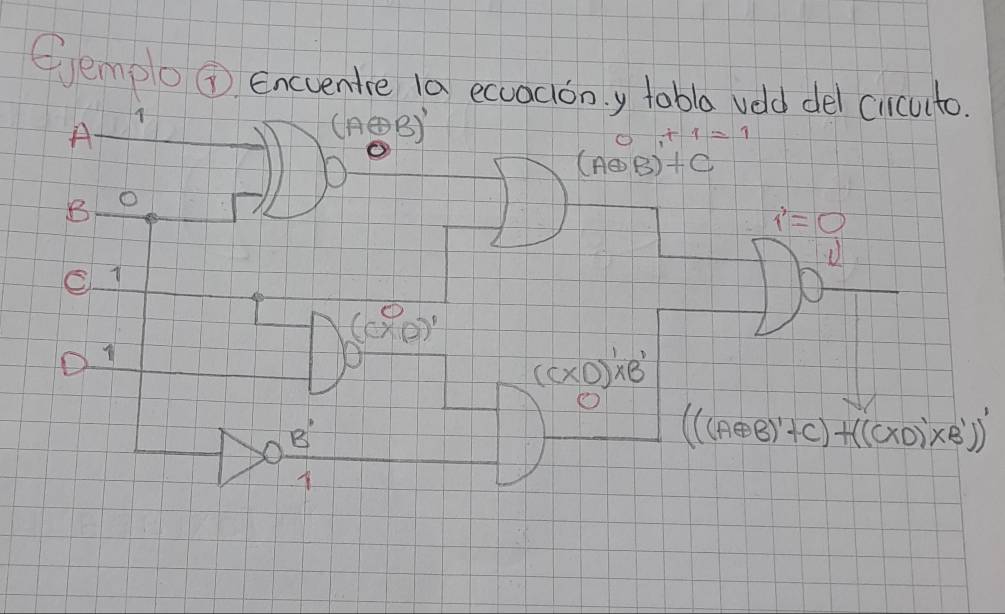 Ejemplo ① Encuentre la ecuación. y tabla vdd del circuito.
A 1 (A⊕B)' 0 + 1 = 1
0 (A⊕B)'+C
B 0 1' = 0
C 1
0
(C×D)'
D 1 ((C×D)'×B'
0
B' (((A⊕B)'+C)+((C×D)'×B'))'
1